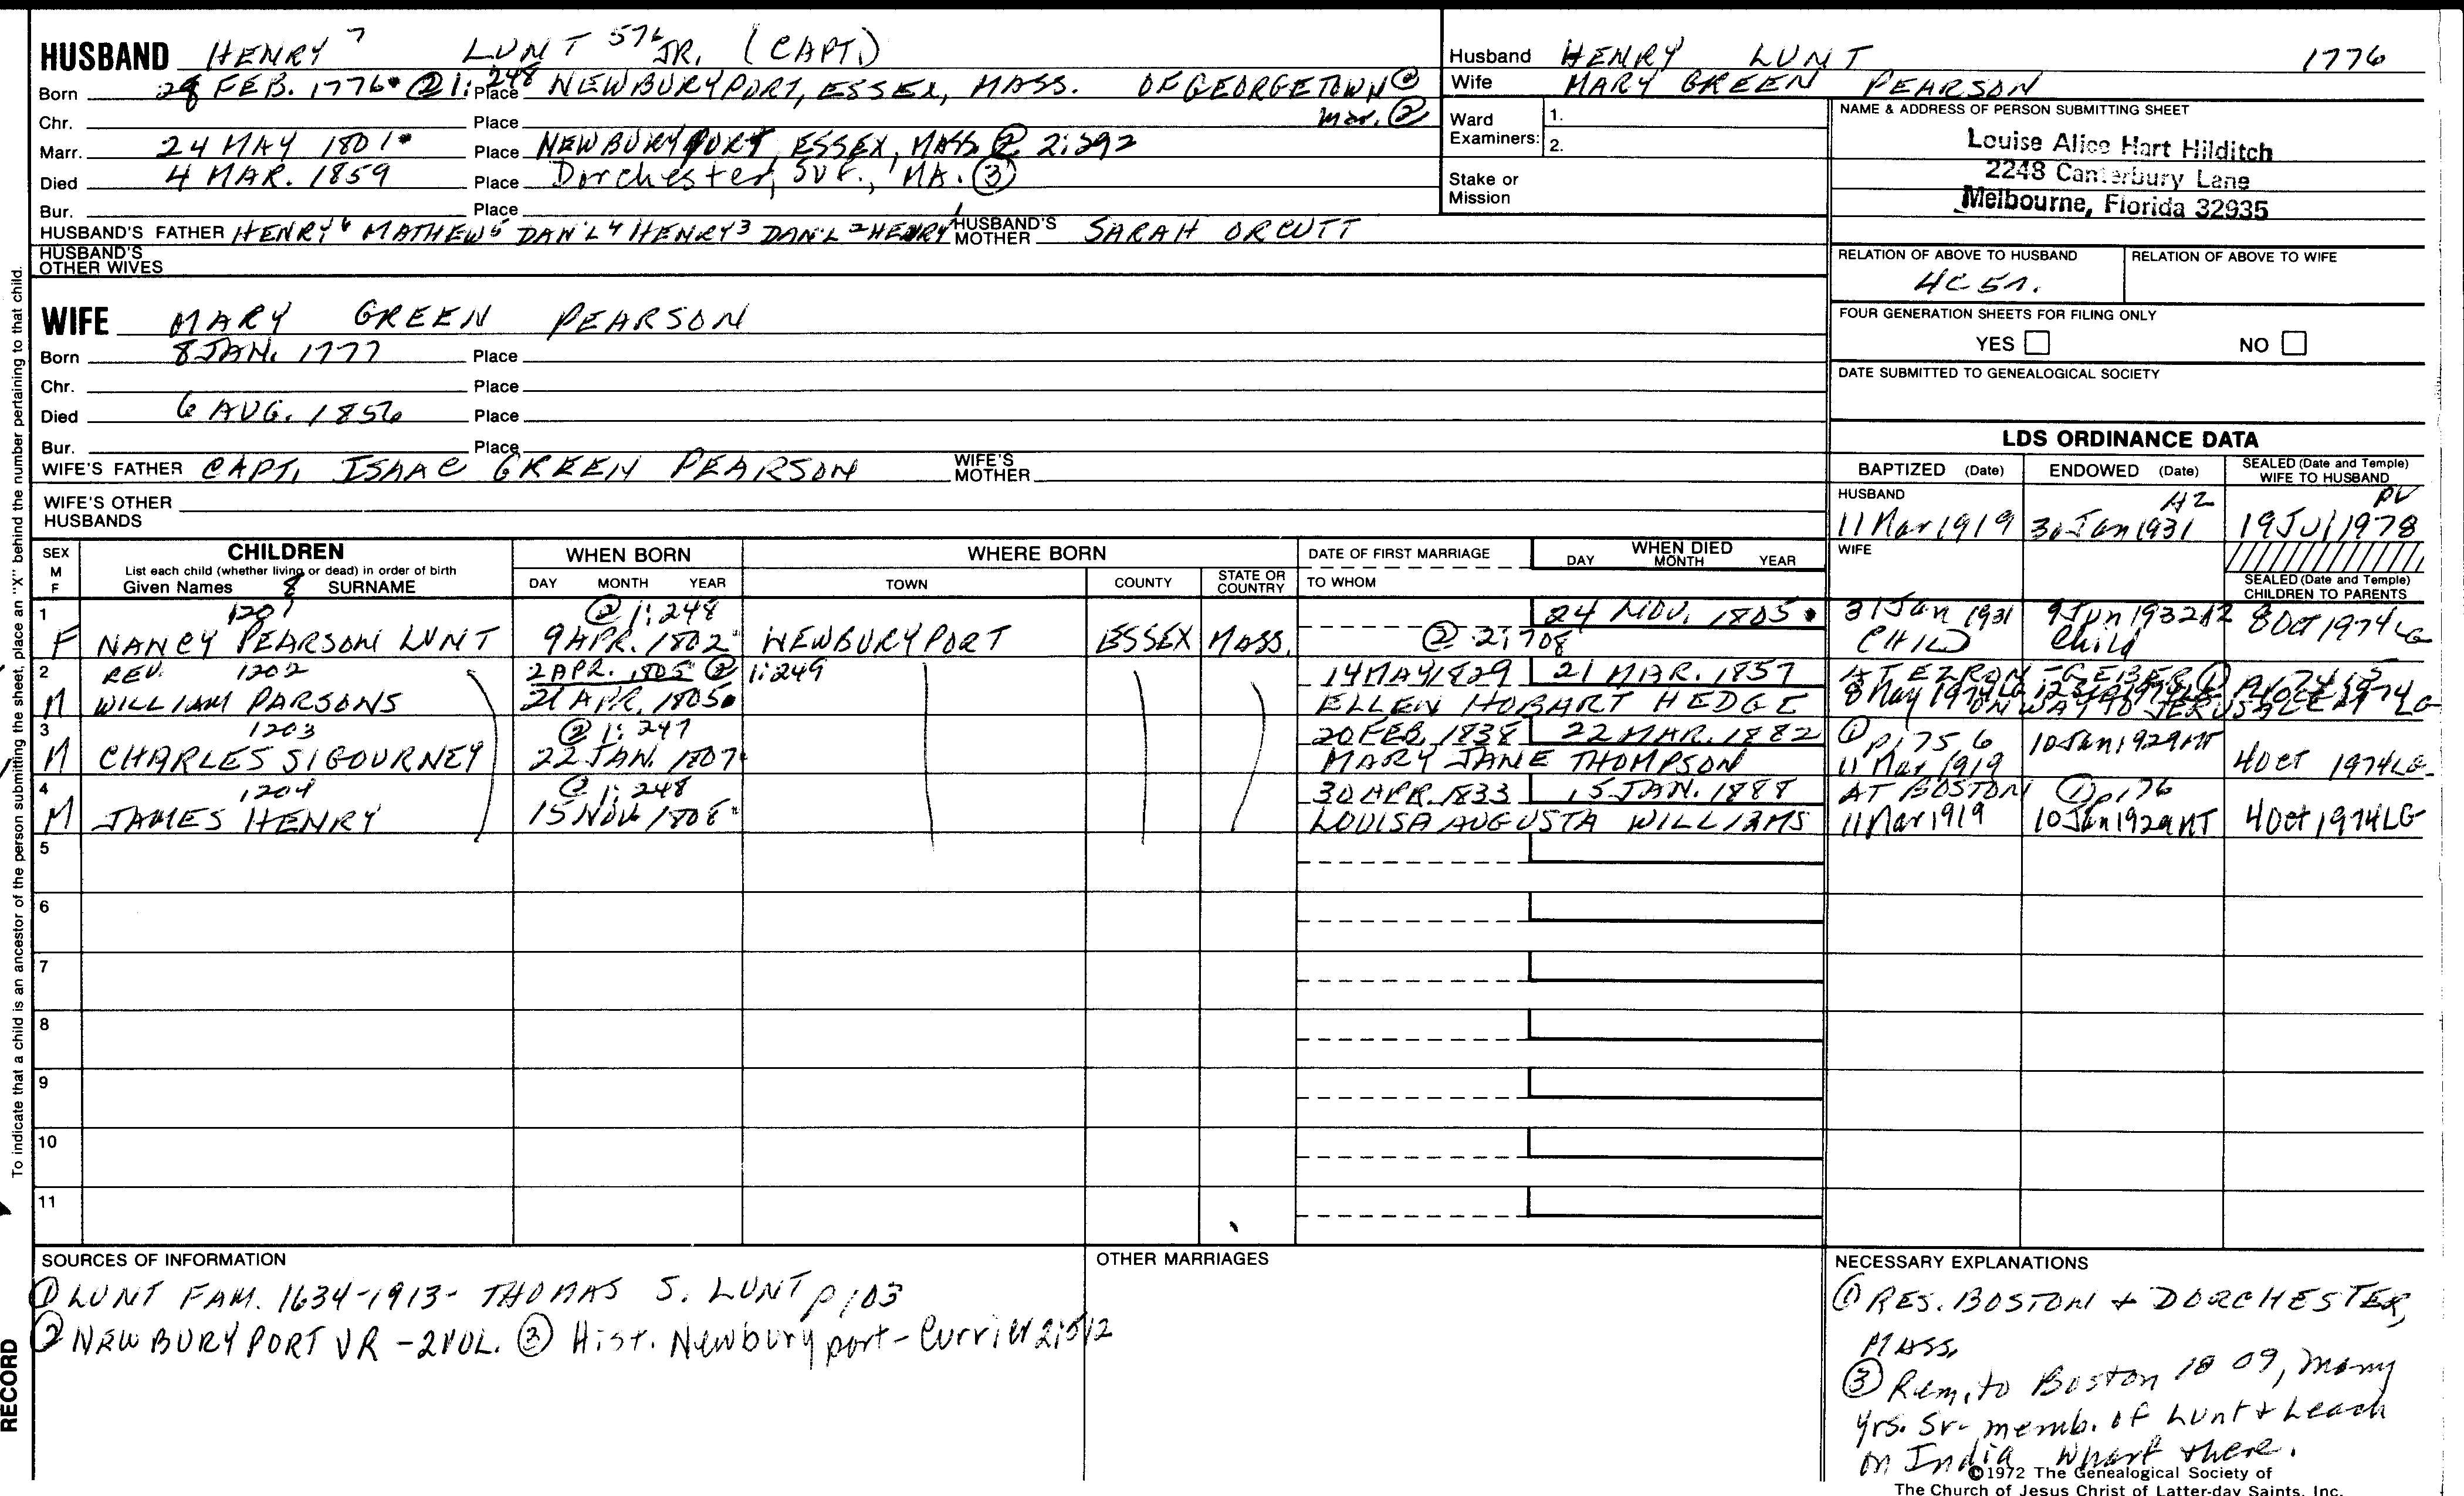 HUSBAND HENRY 7 LUNT 576 JR. (CAPT.)
Born 28 FEB. 1776 ② 1:248 Place NEWBURYPORT, ESSEX, MASS. OF GEORGETOWN ②
Chr. Place mar. ②
Marr. 24 MAY 1801 Place NEWBURYPORT, ESSEX, MASS. ② 2:292
Died 4 MAR. 1859 Place Dorchester, Suf., MA. ③
Bur. Place
HUSBAND'S FATHER HENRY 6 MATHEW 5 DAN'L 4 HENRY 3 DAN'L 2 HENRY 1 HUSBAND'S MOTHER SARAH ORCUTT
HUSBAND'S OTHER WIVES
WIFE MARY GREEN PEARSON
Born 8 JAN. 1777 Place
Chr. Place
Died 6 AUG. 1856 Place
Bur. Place
WIFE'S FATHER CAPT. ISAAC GREEN PEARSON WIFE'S MOTHER
WIFE'S OTHER HUSBANDS
Husband HENRY LUNT 1776
Wife MARY GREEN PEARSON
Ward 1.
Examiners: 2.
Stake or
Mission
NAME & ADDRESS OF PERSON SUBMITTING SHEET
Louise Alice Hart Hilditch
2248 Canterbury Lane
Melbourne, Florida 32935
RELATION OF ABOVE TO HUSBAND RELATION OF ABOVE TO WIFE
4C5r.
FOUR GENERATION SHEETS FOR FILING ONLY
YES NO
DATE SUBMITTED TO GENEALOGICAL SOCIETY
LDS ORDINANCE DATA
BAPTIZED (Date) ENDOWED (Date) SEALED (Date and Temple) WIFE TO HUSBAND
HUSBAND AZ PV
11 Mar 1919 30 Jan 1931 19 Jul 1978
WIFE
SEALED (Date and Temple)
CHILDREN TO PARENTS
SEX M F
CHILDREN
List each child (whether living or dead) in order of birth
Given Names 8 SURNAME
WHEN BORN
DAY MONTH YEAR
WHERE BORN
TOWN COUNTY STATE OR COUNTRY
DATE OF FIRST MARRIAGE
TO WHOM
WHEN DIED
DAY MONTH YEAR
1 1201 ② 1:248 24 NOV. 1805 31 Jan 1931 9 Jun 1932 AZ 8 Oct 1974 LG
F NANCY PEARSON LUNT 9 APR. 1802 NEWBURYPORT ESSEX MASS. ② 2:708 CHILD Child
2 REV. 1202 2 APR. 1805 ② 1:249 14 MAY 1829 21 MAR. 1857 AT EZRON-GEBER ①
M WILLIAM PARSONS 21 APR. 1805 ELLEN HOBART HEDGE 8 May 1974 LG ON WAY TO JERUSALEM LG
3 1203 ② 1:247 20 FEB. 1838 22 MAR. 1882 ① p. 175 6 10 Jan 1929 MT
M CHARLES SIGOURNEY 22 JAN. 1807 MARY JANE THOMPSON 11 Mar 1919 4 Oct 1974 LG
4 1204 ② 1:248 30 APR. 1833 15 JAN. 1888 AT BOSTON ① p. 176
M JAMES HENRY 15 NOV. LOUISA AUGUSTA WILLIAMS 11 Mar 1919 10 Jan 1929 MT 4 Oct 1974 LG
5
6
7
8
9
10
11
SOURCES OF INFORMATION
① LUNT FAM. 1634-1913- THOMAS S. LUNT p 103
② NEWBURYPORT VR - 2 VOL. ③ Hist. Newburyport - Currier 2:512
OTHER MARRIAGES
NECESSARY EXPLANATIONS
① RES. BOSTON + DORCHESTER,
MASS.
③ Rem. to Boston 1809, Many
yrs. Sr- memb. of Lunt + Leach
on India Wharf there.
©1972 The Genealogical Society of
The Church of Jesus Christ of Latter-day Saints, Inc.
To indicate that a child is an ancestor of the person submitting the sheet, place an "X" behind the number pertaining to that child.
RECORD